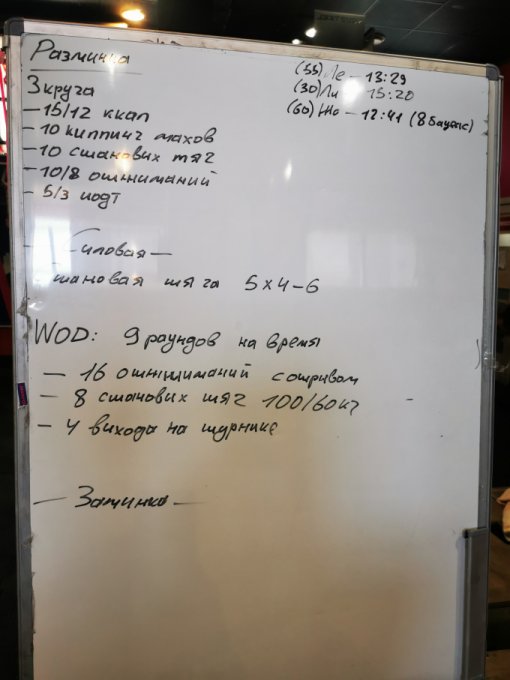 Разминка
3 круга
- 15/12 ккал
- 10 киппинг махов
- 10 становых тяг
- 10/8 отжиманий
- 5/3 подт
(55) Ле - 13:29
(30) Ли - 15:20
(60) Жо - 12:41 (8 баукас)
- Силовая -
тановая тяга 5x4-6
WOD: 9 раундов на время
- 16 отжиманий с отрывом
- 8 становых тяг 100/60кг
- 4 вихода на турнике
- Заминка -